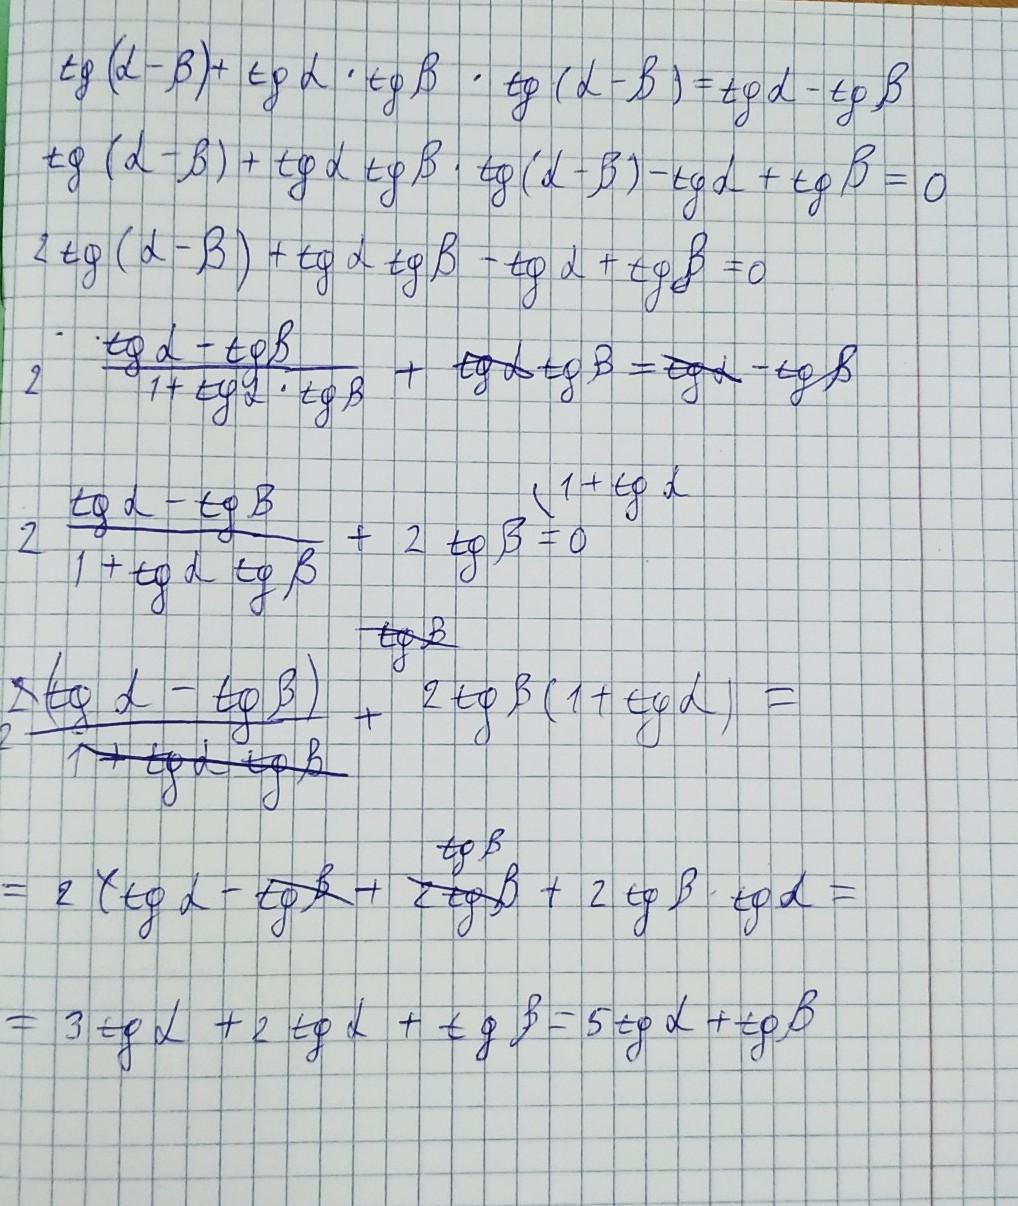 tg(α-β)+ tgα · tgβ · tg(α-β)=tgα-tgβ
tg (α-β)+tgα tgβ · tg(α-β)-tgα+tgβ=0
2tg(α-β)+tgα tgβ -tgα+tgβ=0
2 (tgα-tgβ)/(1+tgα·tgβ) + tgα tgβ=tgα-tgβ
1+tgα
2 (tgα-tgβ)/(1+tgα tgβ) + 2 tgβ=0
tgβ
2(tgα-tgβ)/(1+tgα tgβ) + 2tgβ(1+tgα) =
tgβ
= 2 (tgα-tgβ+2tgβ+2tgβ·tgα=
= 3tgα+2tgα+tgβ=5tgα+tgβ